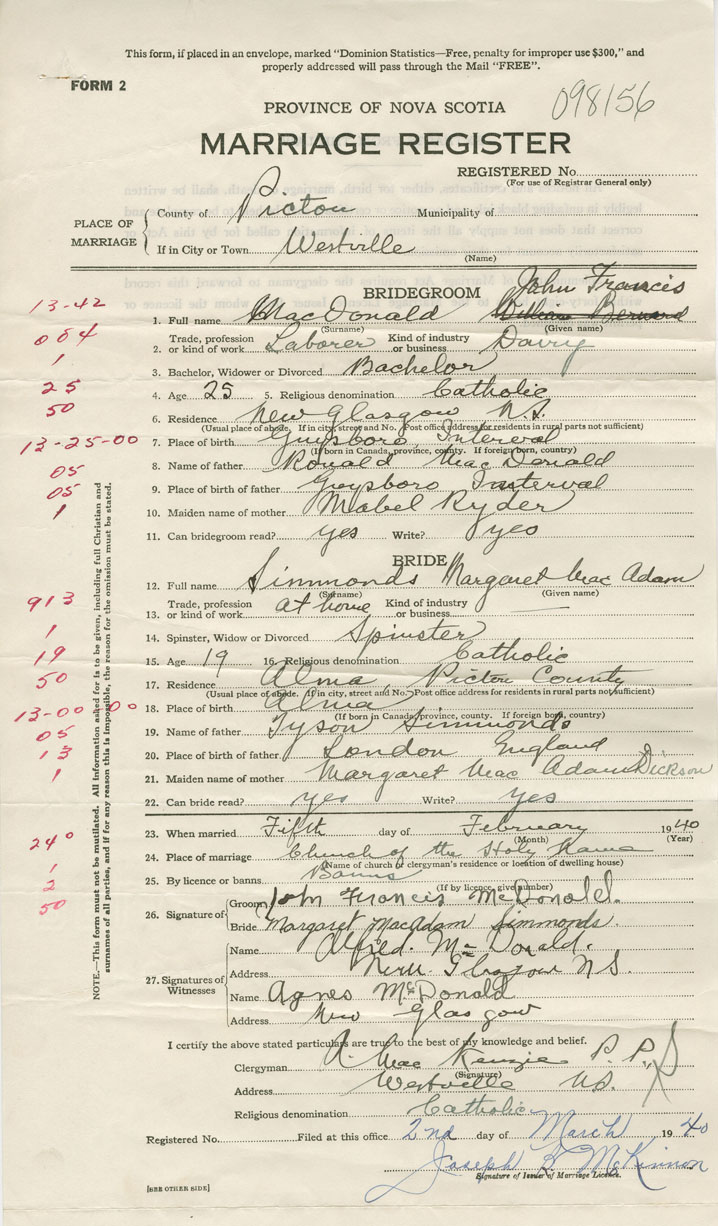 This form, if placed in an envelope, marked "Dominion Statistics—Free, penalty for improper use $300," and
properly addressed will pass through the Mail "FREE".
FORM 2
098156
PROVINCE OF NOVA SCOTIA
MARRIAGE REGISTER
REGISTERED No.
(For use of Registrar General only)
PLACE OF MARRIAGE
County of Pictou Municipality of
If in City or Town Westville
(Name)
BRIDEGROOM John Francis
13-42 1. Full name MacDonald William Bernard
(Surname) (Given name)
004 2. Trade, profession or kind of work Laborer Kind of industry or business Dairy
1 3. Bachelor, Widower or Divorced Bachelor
25 4. Age 25 5. Religious denomination Catholic
50 6. Residence New Glasgow N.S.
(Usual place of abode. If in city, street and No. Post office address for residents in rural parts not sufficient)
13-25-00 7. Place of birth Guysboro Interval
(If born in Canada, province, county. If foreign born, country)
05 8. Name of father Ronald MacDonald
05 9. Place of birth of father Guysboro Interval
1 10. Maiden name of mother Mabel Ryder
11. Can bridegroom read? yes Write? yes
BRIDE
12. Full name Simmonds Margaret Mac Adam
(Surname) (Given name)
913 13. Trade, profession or kind of work at home Kind of industry or business —
1 14. Spinster, Widow or Divorced Spinster
19 15. Age 19 16. Religious denomination Catholic
50 17. Residence Alma, Pictou County
(Usual place of abode. If in city, street and No. Post office address for residents in rural parts not sufficient)
13-00 00 18. Place of birth Alma
(If born in Canada, province, county. If foreign born, country)
05 19. Name of father Tyson Simmonds
13 20. Place of birth of father London England
1 21. Maiden name of mother Margaret Mac Adam Dickson
22. Can bride read? yes Write? yes
23. When married Fifth day of February 1940
(Month) (Year)
240 24. Place of marriage Church of the Holy Name
(Name of church or clergyman's residence or location of dwelling house)
1 25. By licence or banns Banns
(If by licence, give number)
2
50
26. Signature of Groom John Francis McDonald.
Bride Margaret MacAdam Simmonds.
27. Signatures of Witnesses
Name Alfred. McDonald.
Address New Glasgow N S.
Name Agnes McDonald
Address New Glasgow
I certify the above stated particulars are true to the best of my knowledge and belief.
Clergyman A. Mac Kenzie P. P.,
(Signature)
Address Westville N.S.
Religious denomination Catholic
Registered No. Filed at this office 2nd day of March 1940
Joseph McKinnon
Signature of Issuer of Marriage Licence.
[SEE OTHER SIDE]
NOTE.—This form must not be mutilated. All information asked for is to be given, including full Christian and
surnames of all parties, and if for any reason this is impossible, the reason for the omission must be stated.